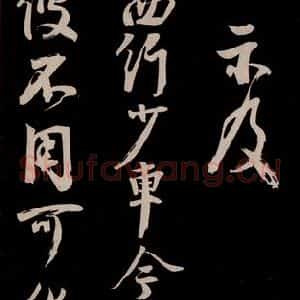 示及
西行少車今
不用可
Shufawang.CN